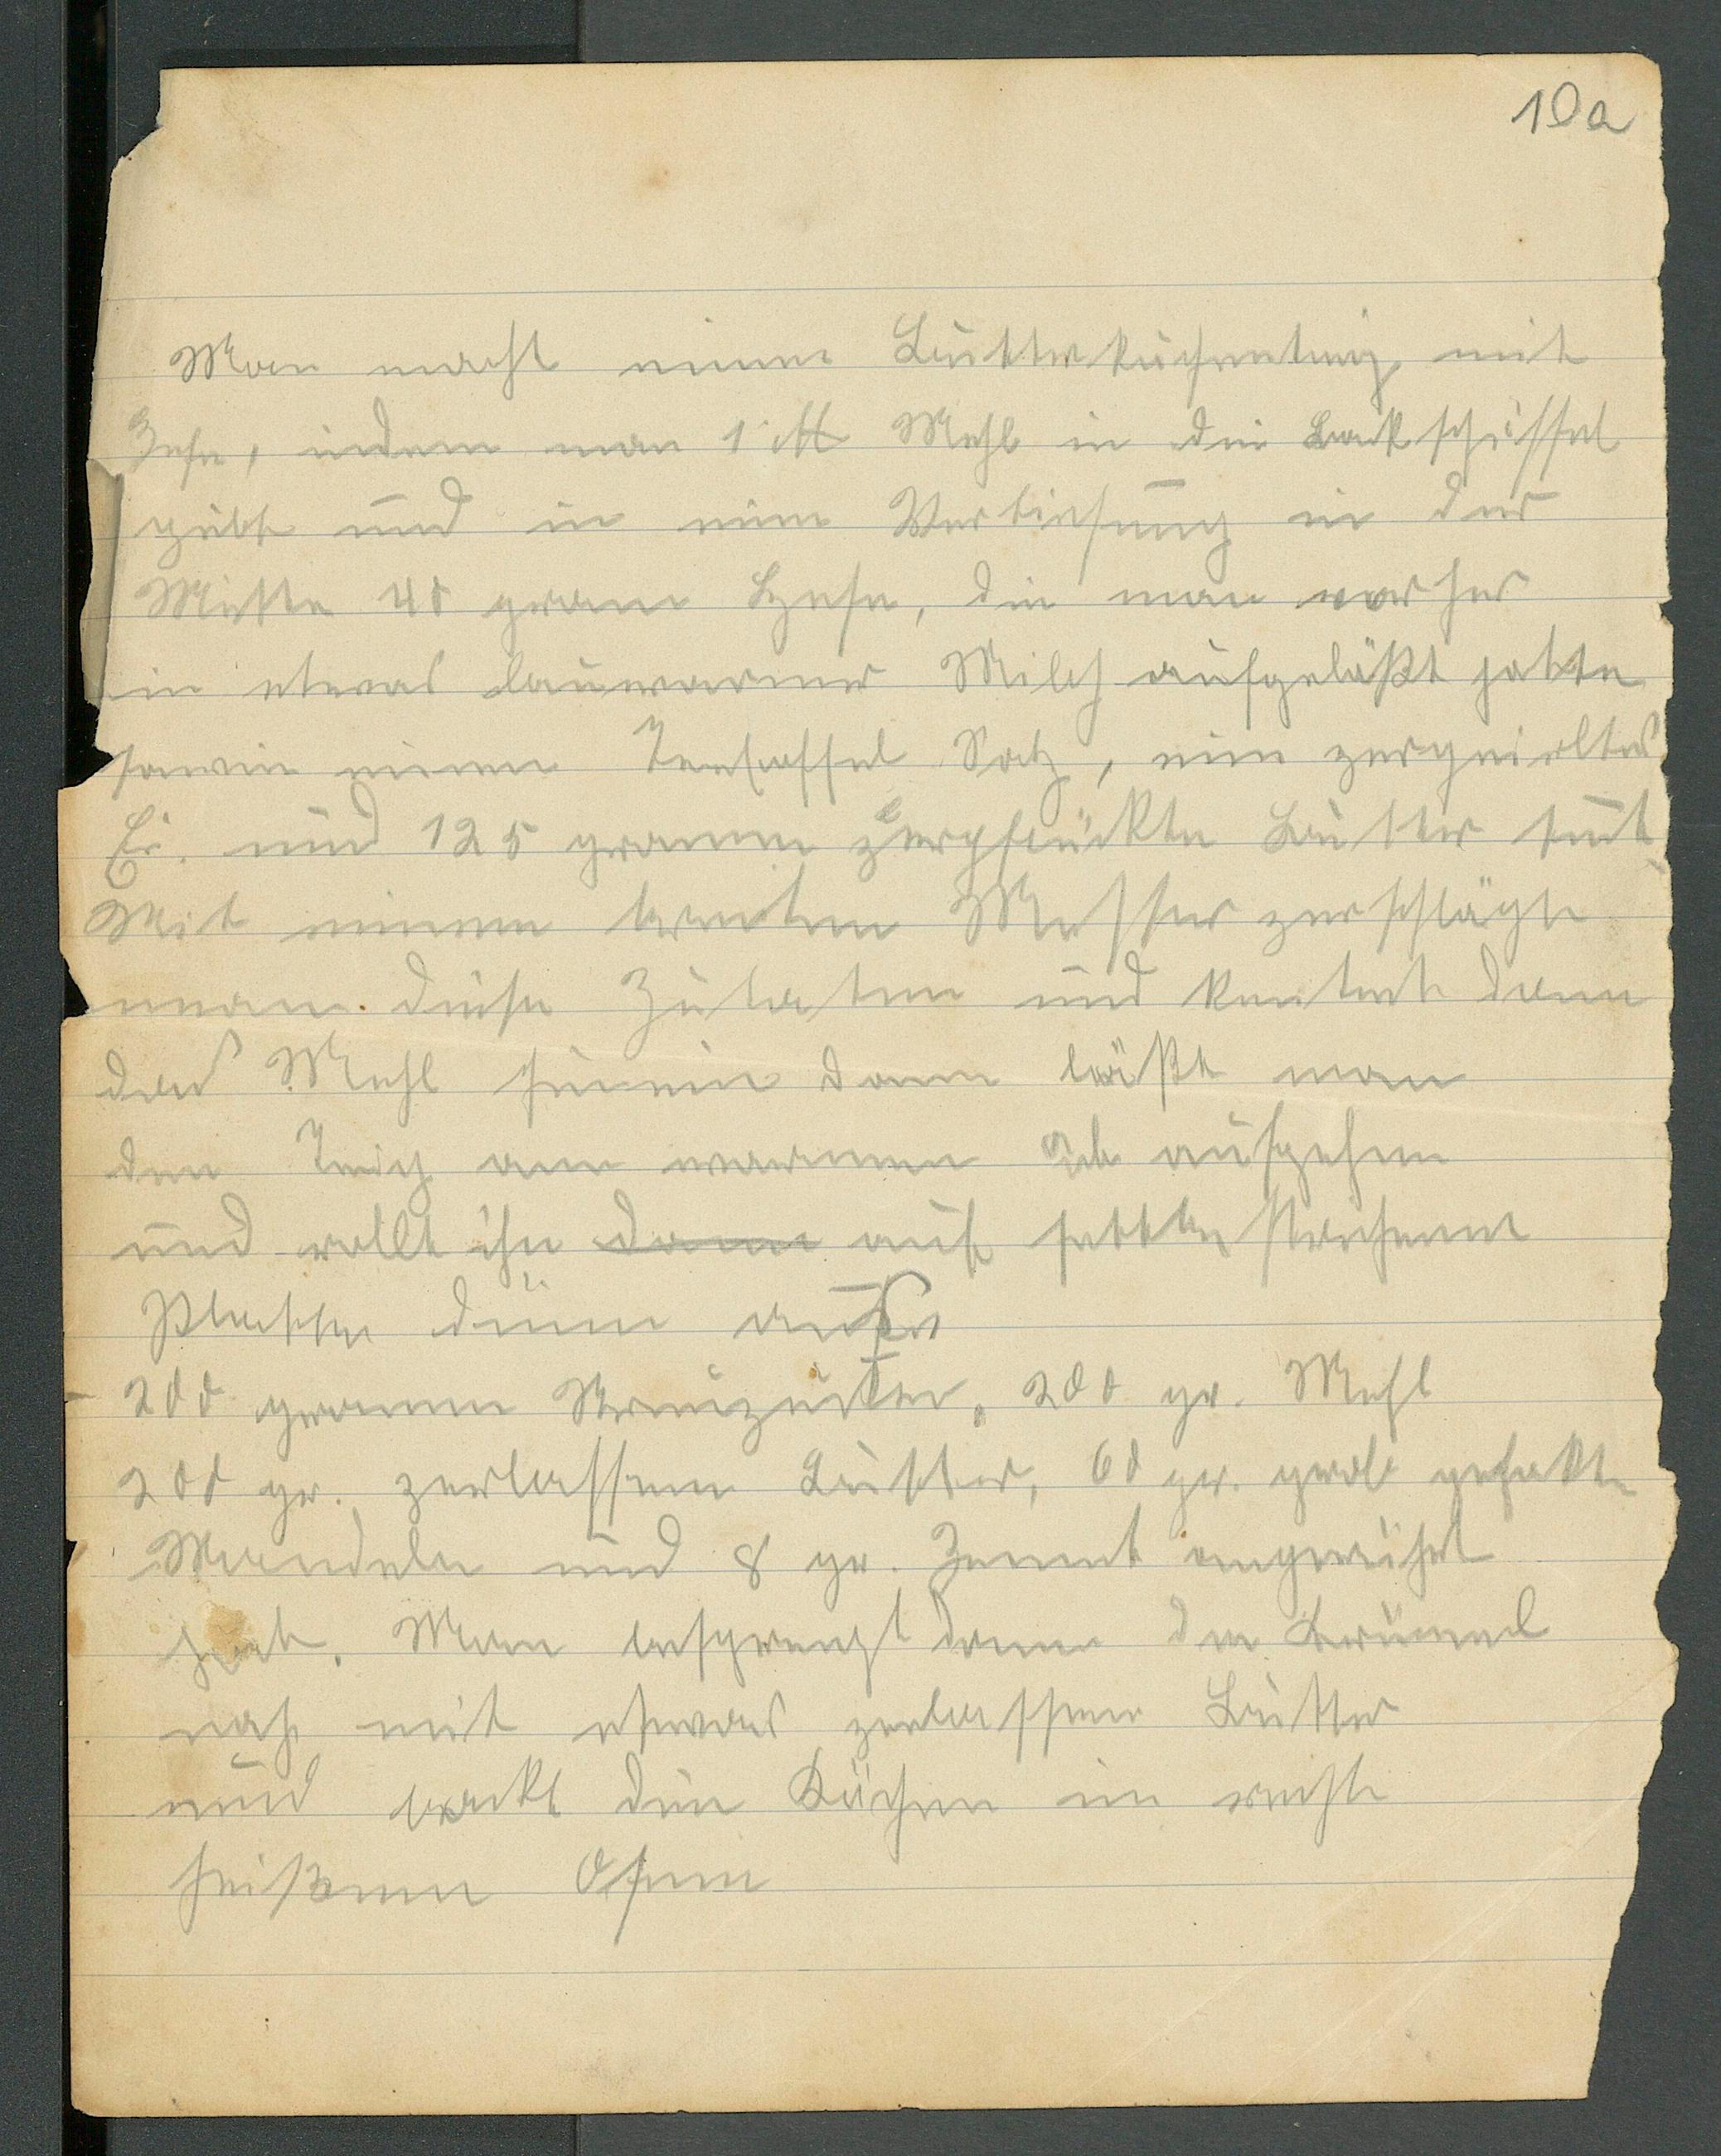 10a
Man macht einen Butterkuchenteig mit
Hefe, indem man 1 ℔ Mehl in die Backschüssel
gibt und in eine Vertiefung in der
Mitte 40 gram Hefe, die man vorher
in etwas lauwarmer Milch aufgelößt hatte
sowie einen Teelöffel Salz, ein zerquirltes
Ei. und 125 gramm zerpflückte Butter tut
Mit einem breiten Messer zerschlägt
man diese Zutaten und knetet dann
das Mehl hinein dann läßt man
den Teig am warmen Ort aufgehen
und rollt ihn dann auf fettbestrichener
Platte dünn aus
200 gramm Streuzucker, 200 gr. Mehl
200 gr. zerlassene Butter, 60 gr. grob gehakte
Mandeln und 8 gr. Zimmt
hat. Man besprengt dann die Krümmel
noch mit etwas zerlassene Butter
und backt den Kuchen im recht
heißem Ofen